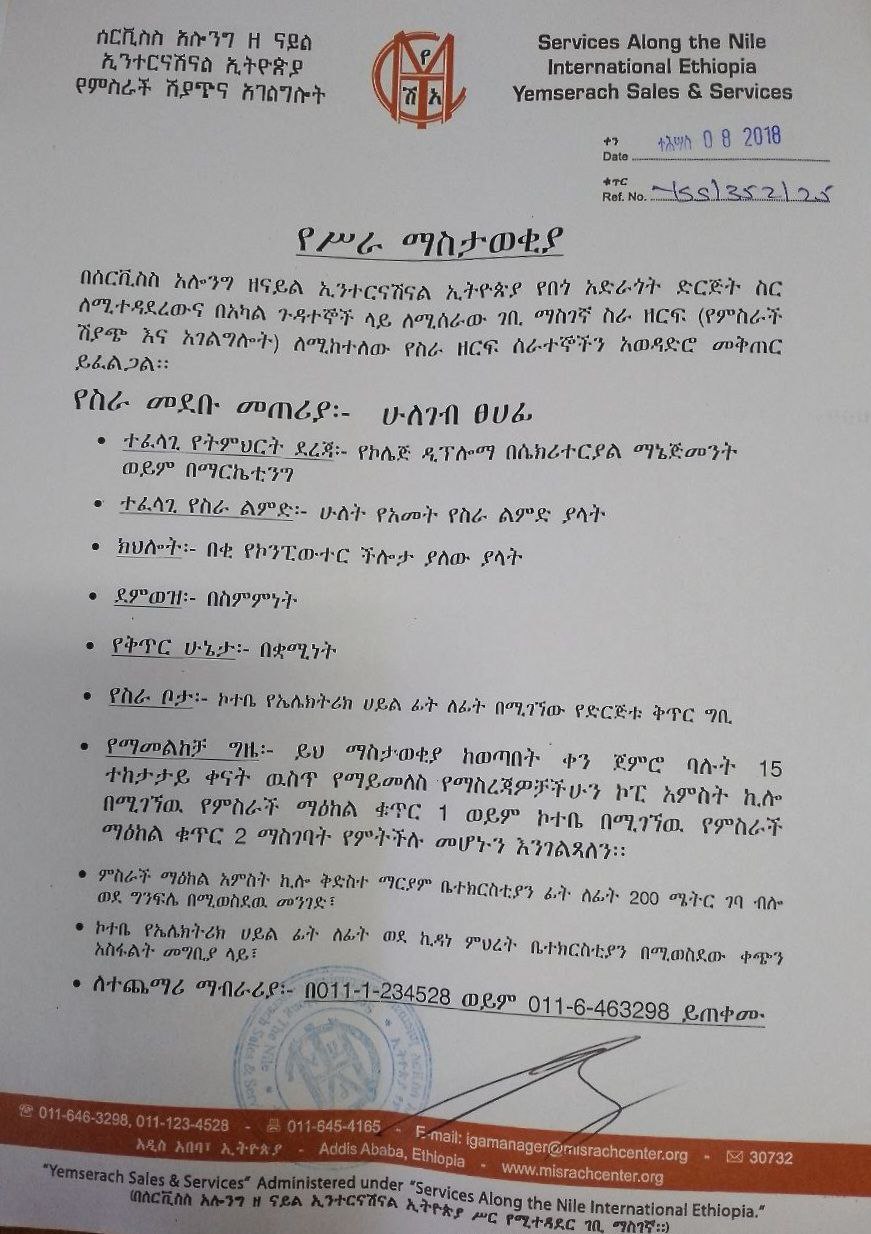 ሰርቪስስ አሎንግ ዘ ናይል
ኢንተርናሽናል ኢትዮጵያ
የምስራች ሽያጭና አገልግሎት
የ
ሽ አ
Services Along the Nile
International Ethiopia
Yemserach Sales & Services
ቀን
Date ታኅሣሥ 0 8 2018
ቁጥር
Ref. No. YSS/352/25
የሥራ ማስታወቂያ
በሰርቪስስ አሎንግ ዘናይል ኢንተርናሽናል ኢትዮጵያ የበጎ አድራጎት ድርጅት ስር
ለሚተዳደረውና በአካል ጉዳተኞች ላይ ለሚሰራው ገቢ ማስገኛ ስራ ዘርፍ (የምስራች
ሽያጭ እና አገልግሎት) ለሚከተለው የስራ ዘርፍ ሰራተኞችን አወዳድሮ መቅጠር
ይፈልጋል፡፡
የስራ መደቡ መጠሪያ፡- ሁለገብ ፀሀፊ
• ተፈላጊ የትምህርት ደረጃ፡- የኮሌጅ ዲፕሎማ በሴክሪተርያል ማኔጅመንት
ወይም በማርኬቲንግ
• ተፈላጊ የስራ ልምድ፡- ሁለት የአመት የስራ ልምድ ያላት
• ክህሎት፡- በቂ የኮንፒውተር ችሎታ ያለው ያላት
• ደምወዝ፡- በስምምነት
• የቅጥር ሁኔታ፡- በቋሚነት
• የስራ ቦታ፡- ኮተቤ የኤሌክትሪክ ሀይል ፊት ለፊት በሚገኘው የድርጅቱ ቅጥር ግቢ
• የማመልከቻ ግዜ፡- ይህ ማስታወቂያ ከወጣበት ቀን ጀምሮ ባሉት 15
ተከታታይ ቀናት ዉስጥ የማይመለስ የማስረጃዎቻችሁን ኮፒ አምስት ኪሎ
በሚገኘዉ የምስራች ማዕከል ቁጥር 1 ወይም ኮተቤ በሚገኘዉ የምስራች
ማዕከል ቁጥር 2 ማስገባት የምትችሉ መሆኑን እንገልጻለን፡፡
• ምስራች ማዕከል አምስት ኪሎ ቅድስተ ማርያም ቤተክርስቲያን ፊት ለፊት 200 ሜትር ገባ ብሎ
ወደ ግንፍሌ በሚወስደዉ መንገድ፣
• ኮተቤ የኤሌክትሪክ ሀይል ፊት ለፊት ወደ ኪዳነ ምህረት ቤተክርስቲያን በሚወስደው ቀጭን
አስፋልት መግቢያ ላይ፣
• ለተጨማሪ ማብራሪያ፡- በ011-1-234528 ወይም 011-6-463298 ይጠቀሙ
011-646-3298, 011-123-4528 - 011-645-4165 - E-mail: igamanager@misrachcenter.org - 30732
አዲስ አበባ፣ ኢትዮጵያ - Addis Ababa, Ethiopia - www.misrachcenter.org
“Yemserach Sales & Services” Administered under “Services Along the Nile International Ethiopia.”
(በሰርቪስስ አሎንግ ዘ ናይል ኢንተርናሽናል ኢትዮጵያ ሥር የሚተዳደር ገቢ ማስገኛ፡፡)